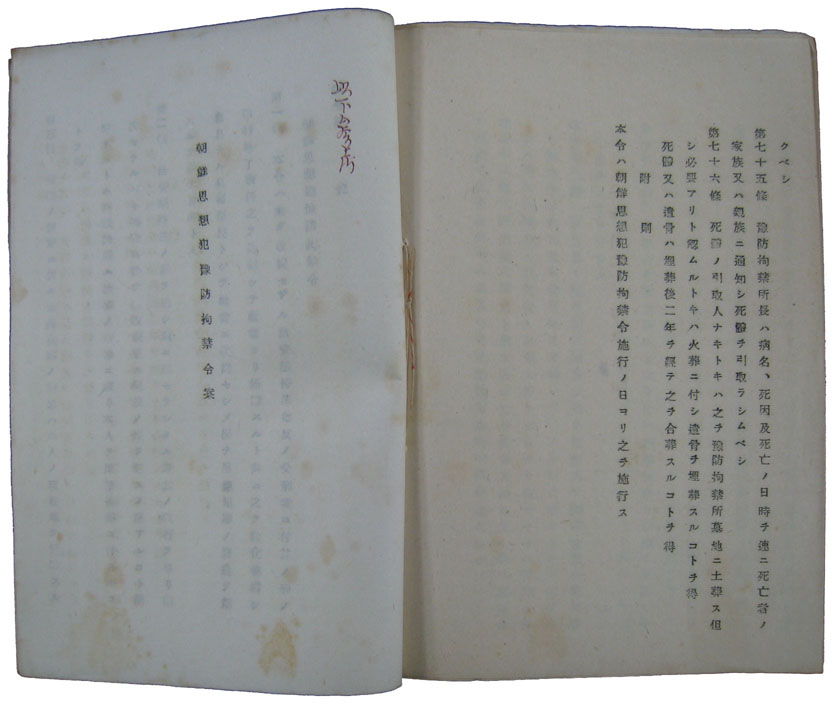 クベシ
第七十五條　豫防拘禁所長ハ病名、死因及死亡ノ日時ヲ速ニ死亡者ノ
家族又ハ親族ニ通知シ死體ヲ引取ラシムベシ
第七十六條　死體ノ引取人ナキトキハ之ヲ豫防拘禁所墓地ニ土葬ス但
シ必要アリト認ムルトキハ火葬ニ付シ遺骨ヲ埋葬スルコトヲ得
死體又ハ遺骨ハ埋葬後二年ヲ經テ之ヲ合葬スルコトヲ得
附則
本令ハ朝鮮思想犯豫防拘禁令施行ノ日ヨリ之ヲ施行ス
以下
朝鮮思想犯豫防拘禁令案